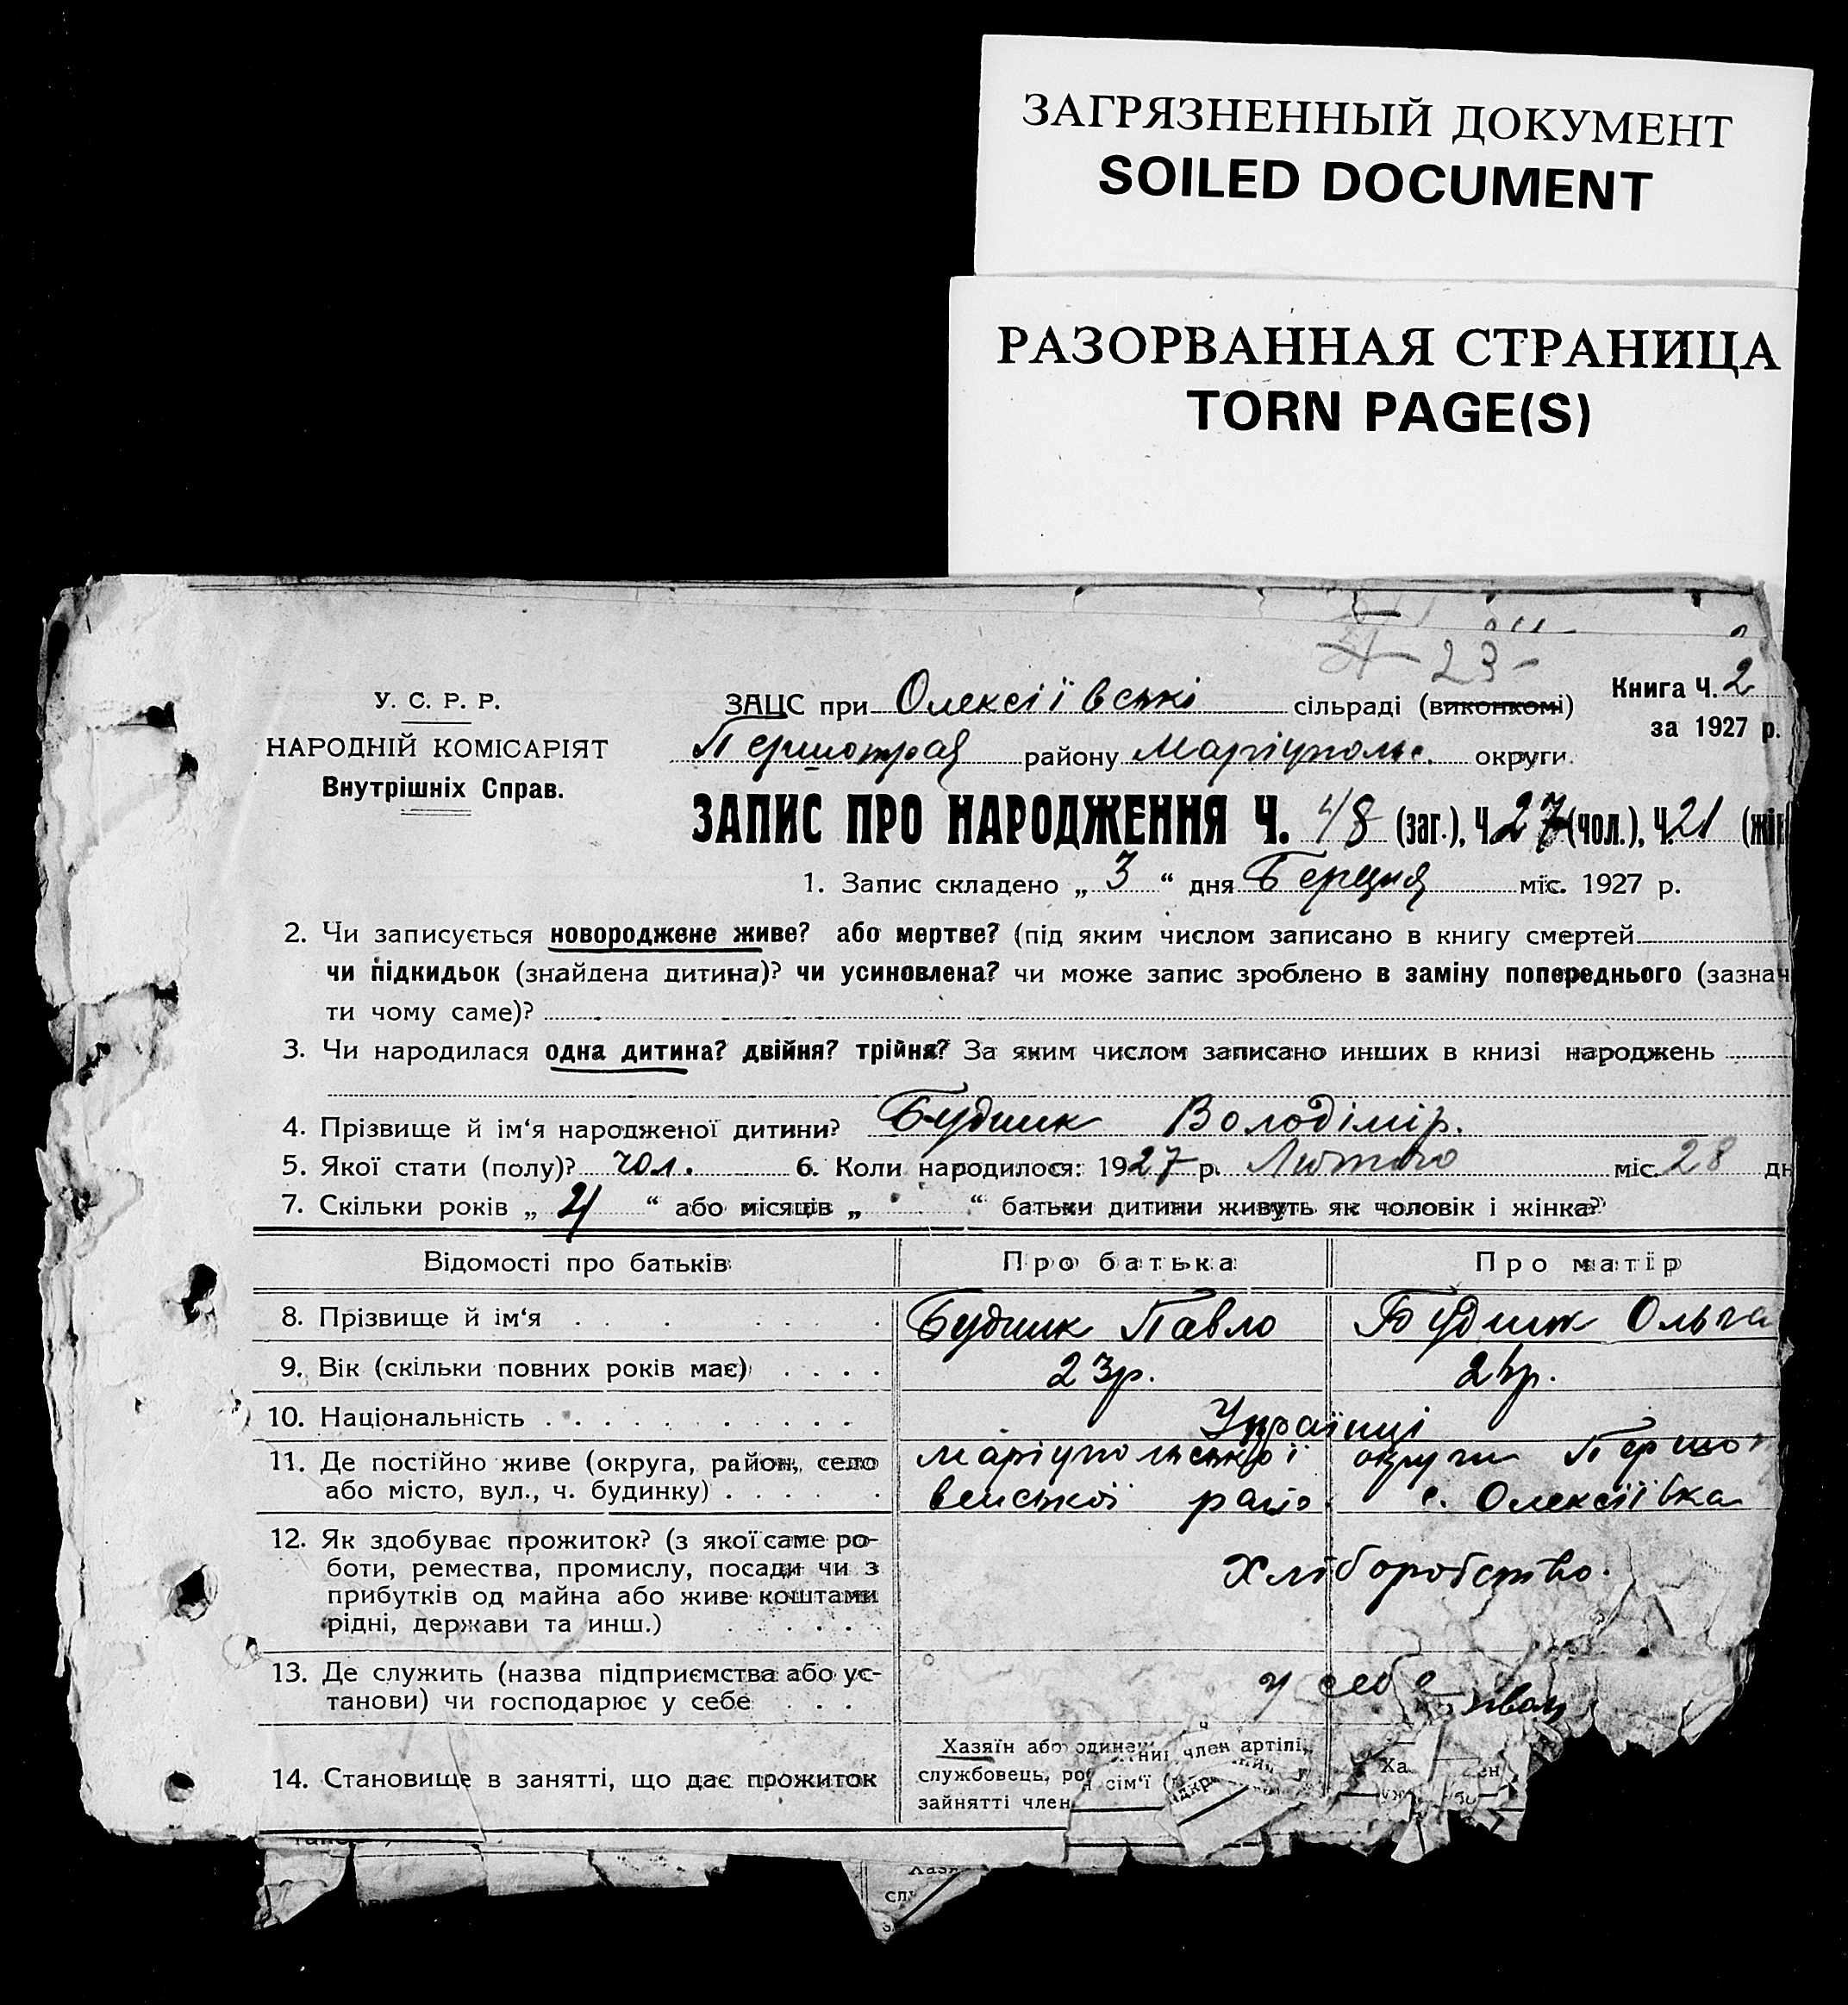 ЗАГРЯЗНЕННЫЙ ДОКУМЕНТ
SOILED DOCUMENT
РАЗОРВАННАЯ СТРАНИЦА
TORN PAGE(S)
23-
У. С. Р. Р.
НАРОДНІЙ КОМІСАРІЯТ
Внутрішніх Справ.
ЗАЦС при Олексіївські сільраді (виконкомі)
Книга Ч. 2
за 1927 р.
Першотрав району Маріупольс. округи.
ЗАПИС ПРО НАРОДЖЕННЯ Ч. 48 (заг.), Ч. 27 (чол.), Ч. 21 (жін
1. Запис складено „ 3 “ дня Березня міс. 1927 р.
2. Чи записується новороджене живе? або мертве? (під яким числом записано в книгу смертей
чи підкидьок (знайдена дитина)? чи усиновлена? чи може запис зроблено в заміну попереднього (зазнач
ти чому саме)?
3. Чи народилася одна дитина? двійня? трійня? За яким числом записано инших в книзі народжень
4. Прізвище й ім‘я народженої дитини? Будник Володімір.
5. Якої стати (полу)? чол. 6. Коли народилося: 1927 р. Лютого міс. 28 дн
7. Скільки років „ 4 “ або місяців „ “ батьки дитини живуть як чоловік і жінка?
Відомості про батьків Про батька Про матір
8. Прізвище й ім‘я Будник Павло Будник Ольга
9. Вік (скільки повних років має) 23р. р.
10. Національність Українці
11. Де постійно живе (округа, район, село Маріупольської округи Першот
або місто, вул., ч. будинку) райо. с. Олексіївка
12. Як здобуває прожиток? (з якої саме ро-
боти, ремества, промислу, посади чи з
прибутків од майна або живе коштами
рідні, держави та инш.)
Хліборобство.
13. Де служить (назва підприємства або ус-
танови) чи господарює у себе
у себе
14. Становище в занятті, що дає прожиток
Хазяїн або член артілі,
службовець, сім‘ї
зайнятті член